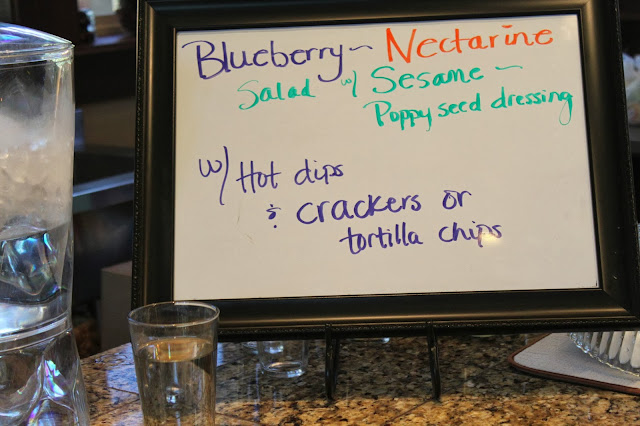 Blueberry ~ Nectarine
Salad w/ Sesame ~
Poppyseed dressing
w/ Hot dips
& crackers or
tortilla chips